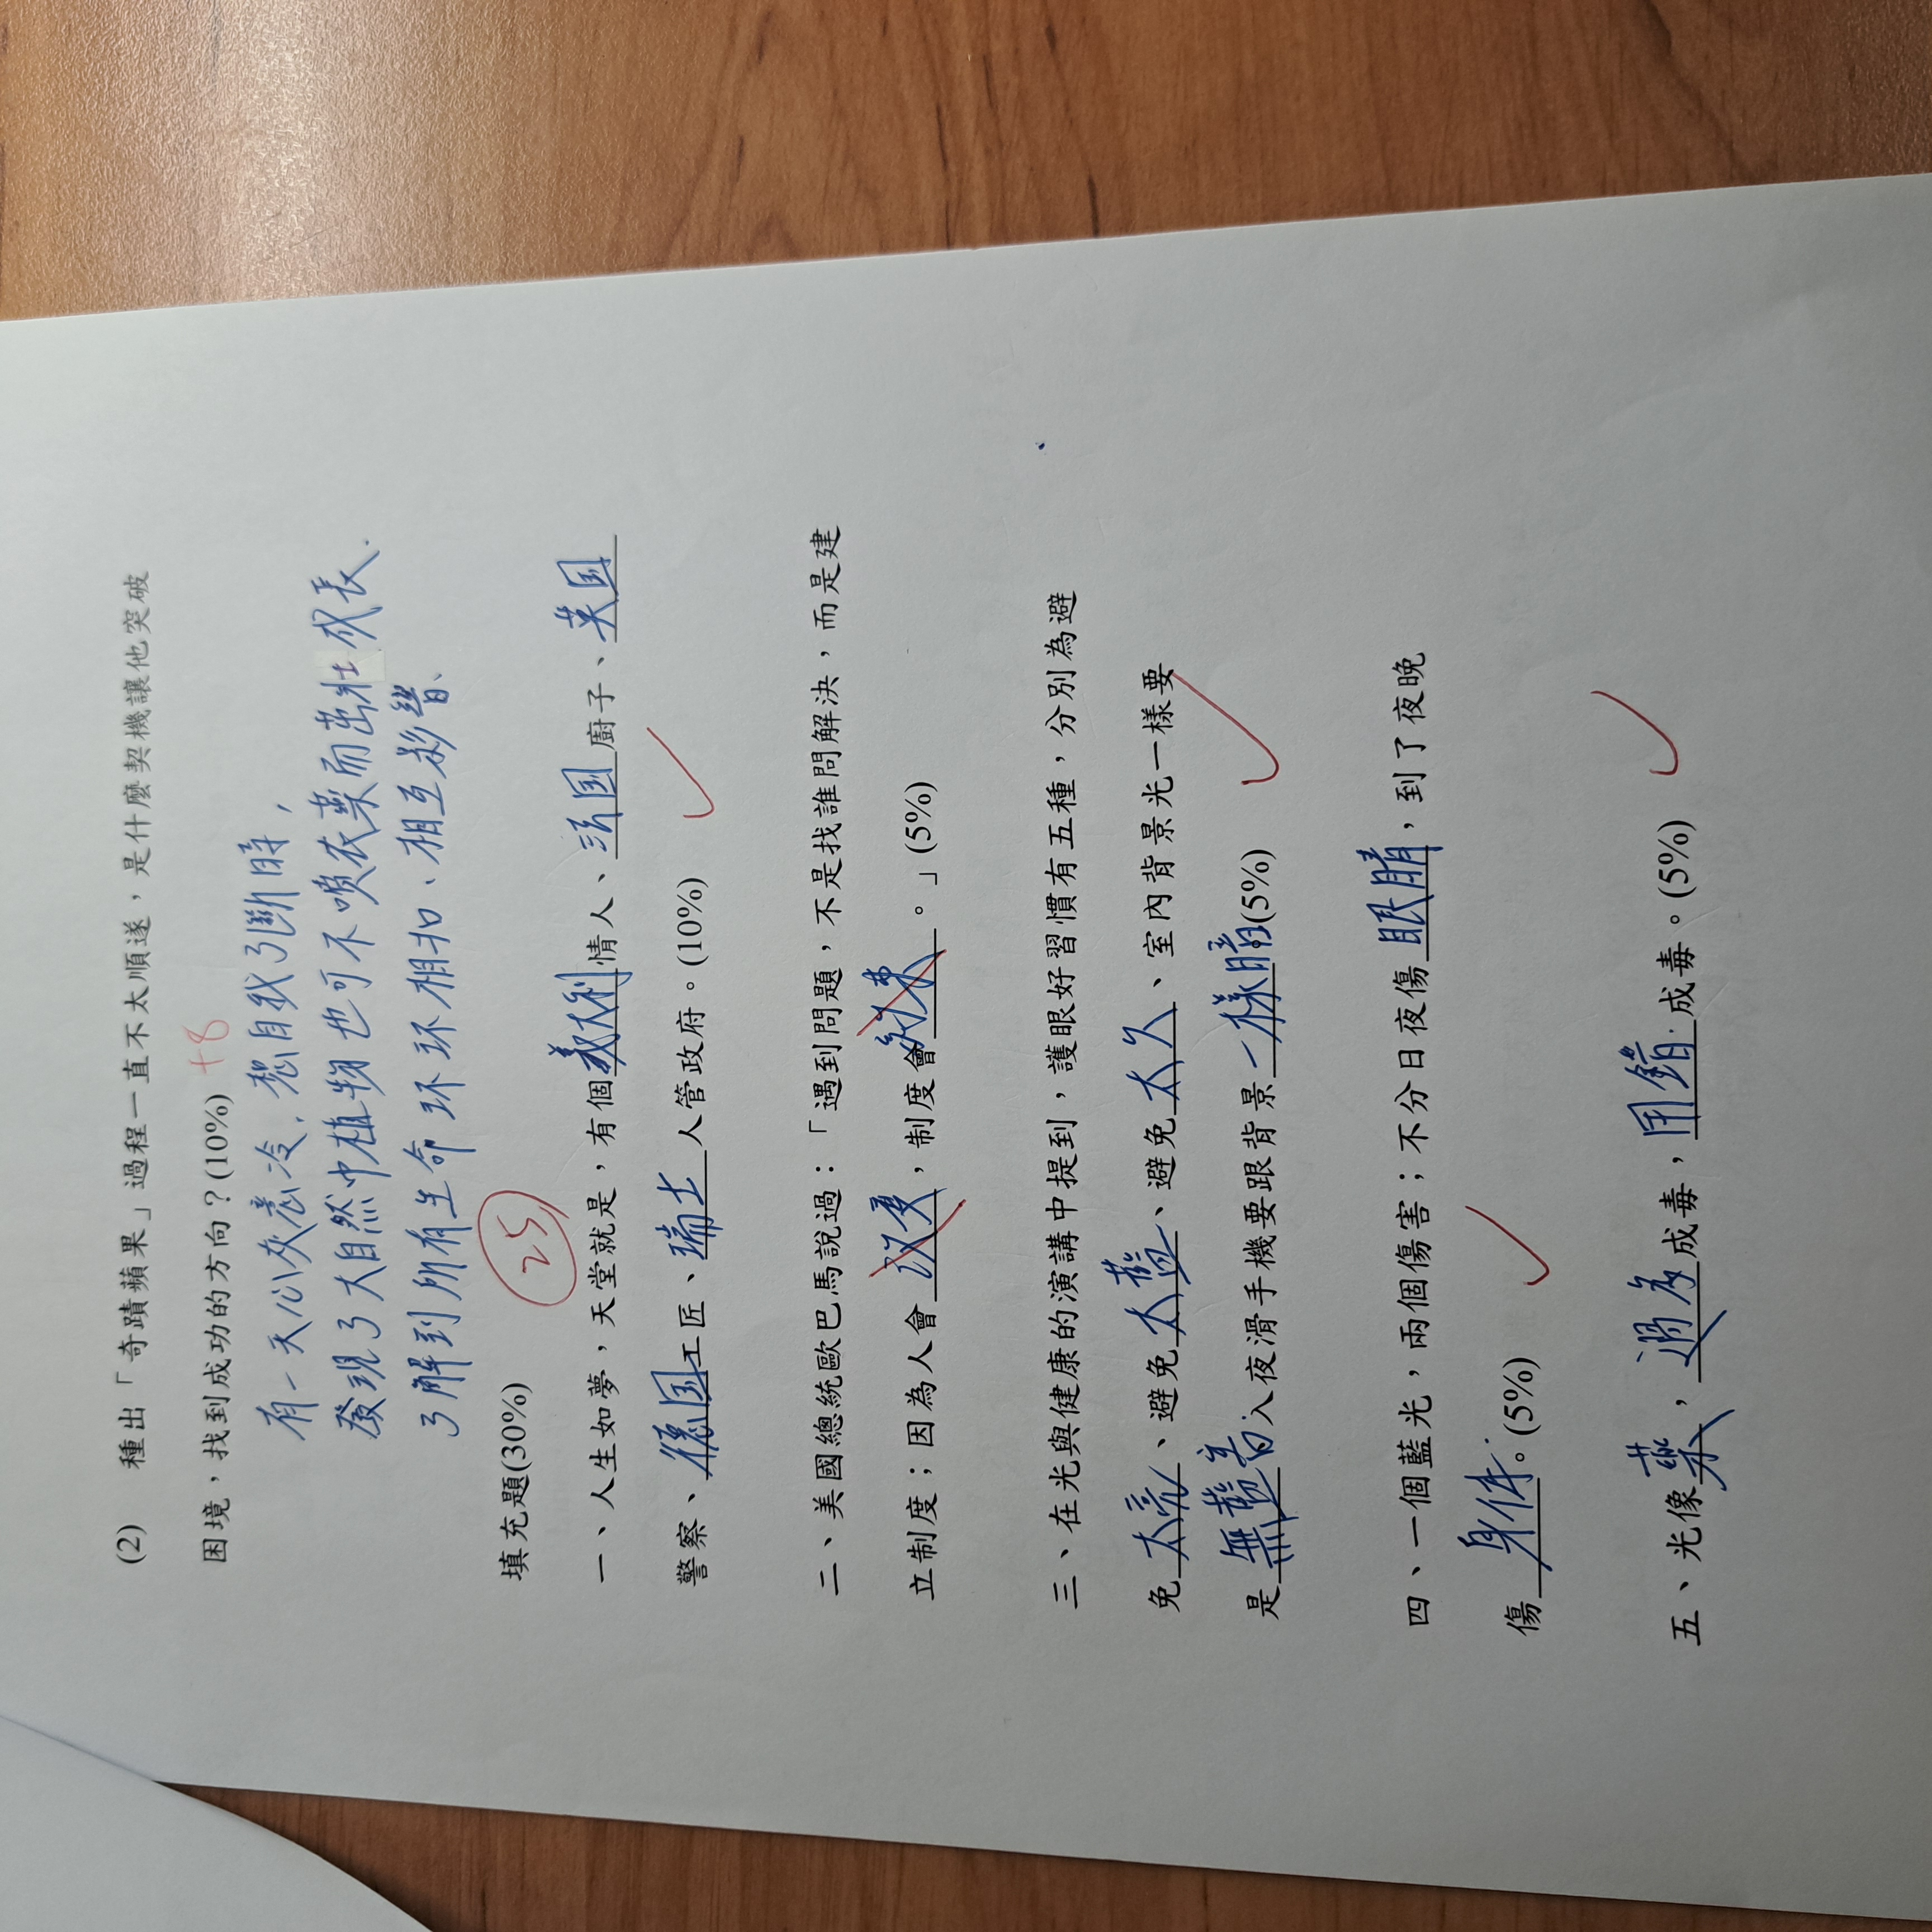 (2) 種出「奇蹟蘋果」過程一直不太順遂，是什麼契機讓他突破
困境，找到成功的方向？(10%) +8
有一天心灰意冷，想自我了斷時，
發現了大自然中植物也可不噴农藥而茁壯成長.
了解到所有生命环环相扣、相互影響、
填充題(30%) 25
一、人生如夢，天堂就是，有個義大利情人、法国廚子、英国
警察、德国工匠、瑞士人管政府。(10%)
二、美國總統歐巴馬說過：「遇到問題，不是找誰問解決，而是建
立制度；因為人會改变，制度會約束。」(5%)
三、在光與健康的演講中提到，護眼好習慣有五種，分別為避
免太亮、避免太藍、避免太久、室內背景光一樣要
是無藍害.入夜滑手機要跟背景一樣暗。(5%)
四、一個藍光，兩個傷害；不分日夜傷眼睛，到了夜晚
傷身体。(5%)
五、光像藥，過多成毒，用錯成毒。(5%)